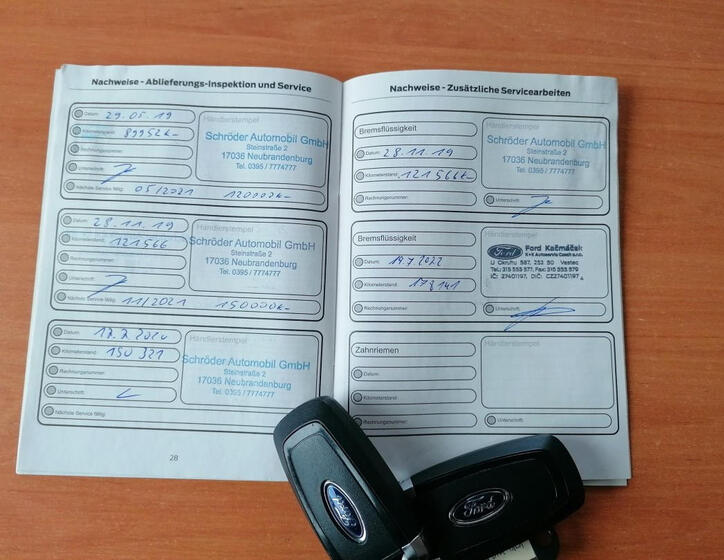 Nachweise - Ablieferungs-Inspektion und Service
Datum: 29.05.19
Kilometerstand: 89952k-
Rechnungsnummer:
Unterschrift:
Nächste Service fällig: 05/2021 120000k-
Händlerstempel
Schröder Automobil GmbH
Steinstraße 2
17036 Neubrandenburg
Tel. 0395 / 7774777
Datum: 28.11.19
Kilometerstand: 121566
Rechnungsnummer:
Unterschrift:
Nächste Service fällig: 11/2021 150000k-
Händlerstempel
Schröder Automobil GmbH
Steinstraße 2
17036 Neubrandenburg
Tel. 0395 / 7774777
Datum: 17.7.2020
Kilometerstand: 150 321
Rechnungsnummer:
Unterschrift:
Nächste Service fällig:
Händlerstempel
Schröder Automobil GmbH
Steinstraße 2
17036 Neubrandenburg
Tel. 0395 / 7774777
28
Nachweise - Zusätzliche Servicearbeiten
Bremsflüssigkeit
Datum: 28.11.19
Kilometerstand: 121566k-
Rechnungsnummer:
Händlerstempel
Schröder Automobil GmbH
Steinstraße 2
17036 Neubrandenburg
Tel. 0395 / 7774777
Unterschrift:
Bremsflüssigkeit
Datum: 19.7.2022
Kilometerstand: 178141
Rechnungsnummer:
Händlerstempel
Ford Ford Kačmáček
K+K Autoservis Czech s.r.o.
U Okruhu 587, 252 50 Vestec
Tel.: 315 555 577, Fax: 315 555 579
IČ: 27401197, DIČ: CZ27401197
Unterschrift:
Zahnriemen
Datum:
Kilometerstand:
Rechnungsnummer:
Händlerstempel
Unterschrift:
Ford
Ford